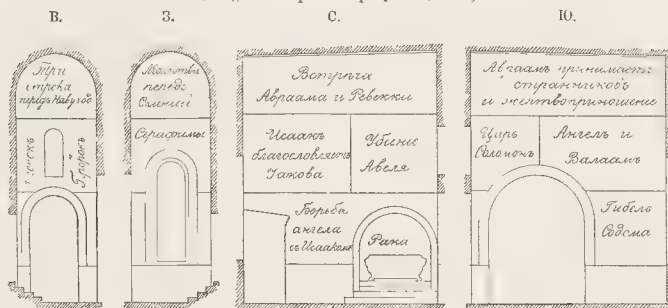 В.
З.
С.
Ю.
Три
отрока
передъ Навуход
Пророкъ
Молитва
передъ
Скиніей
Серафимы
Встрѣча
Авраама и Ревекки
Исаакъ
благословляетъ
Іакова
Убіеніе
Авеля
Борьба
ангела
съ Исаакомъ
Рака
Авраамъ принимаетъ
странниковъ
и жертвоприношеніе
Царь
Соломонъ
Ангелъ и
Валаамъ
Гибель
Содома